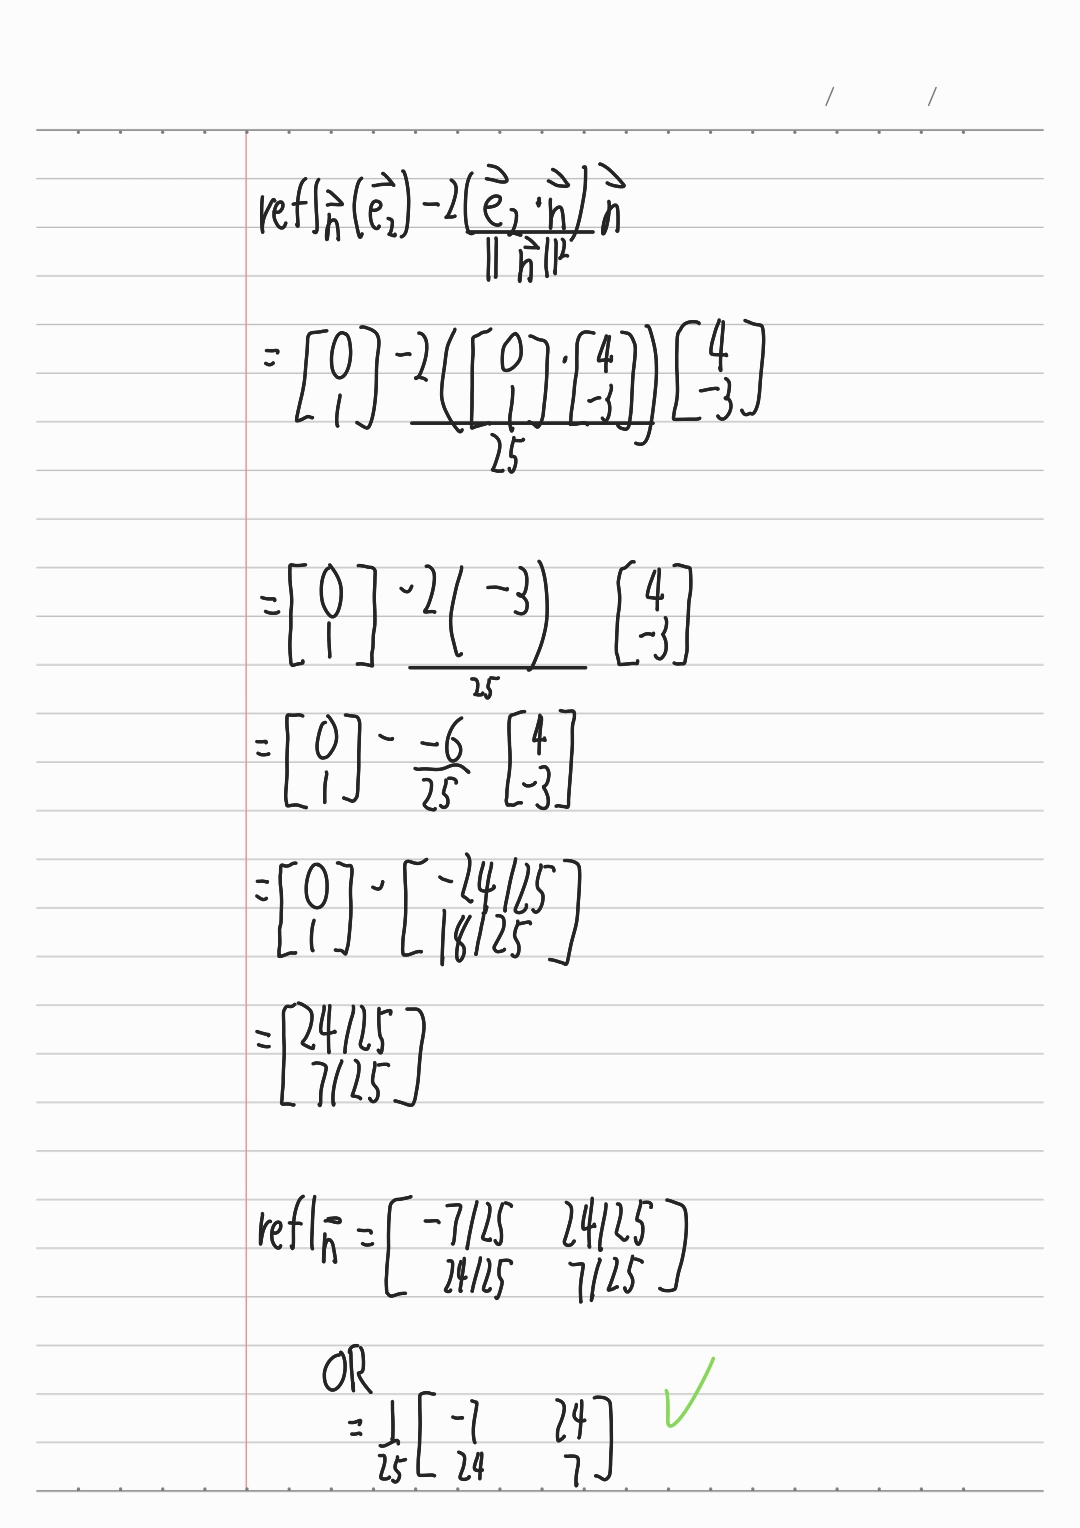 refl_{\vec{n}}(\vec{e}_2) - 2\frac{(\vec{e}_2 \cdot \vec{n})}{||\vec{n}||^2} \vec{n}
= \begin{bmatrix} 0 \\ 1 \end{bmatrix} - \frac{2\left(\begin{bmatrix} 0 \\ 1 \end{bmatrix} \cdot \begin{bmatrix} 4 \\ -3 \end{bmatrix}\right)}{25} \begin{bmatrix} 4 \\ -3 \end{bmatrix}
= \begin{bmatrix} 0 \\ 1 \end{bmatrix} - \frac{2(-3)}{25} \begin{bmatrix} 4 \\ -3 \end{bmatrix}
= \begin{bmatrix} 0 \\ 1 \end{bmatrix} - \frac{-6}{25} \begin{bmatrix} 4 \\ -3 \end{bmatrix}
= \begin{bmatrix} 0 \\ 1 \end{bmatrix} - \begin{bmatrix} -24/25 \\ 18/25 \end{bmatrix}
= \begin{bmatrix} 24/25 \\ 7/25 \end{bmatrix}
refl_{\vec{n}} = \begin{bmatrix} -7/25 & 24/25 \\ 24/25 & 7/25 \end{bmatrix}
OR
= \frac{1}{25} \begin{bmatrix} -7 & 24 \\ 24 & 7 \end{bmatrix} ✓